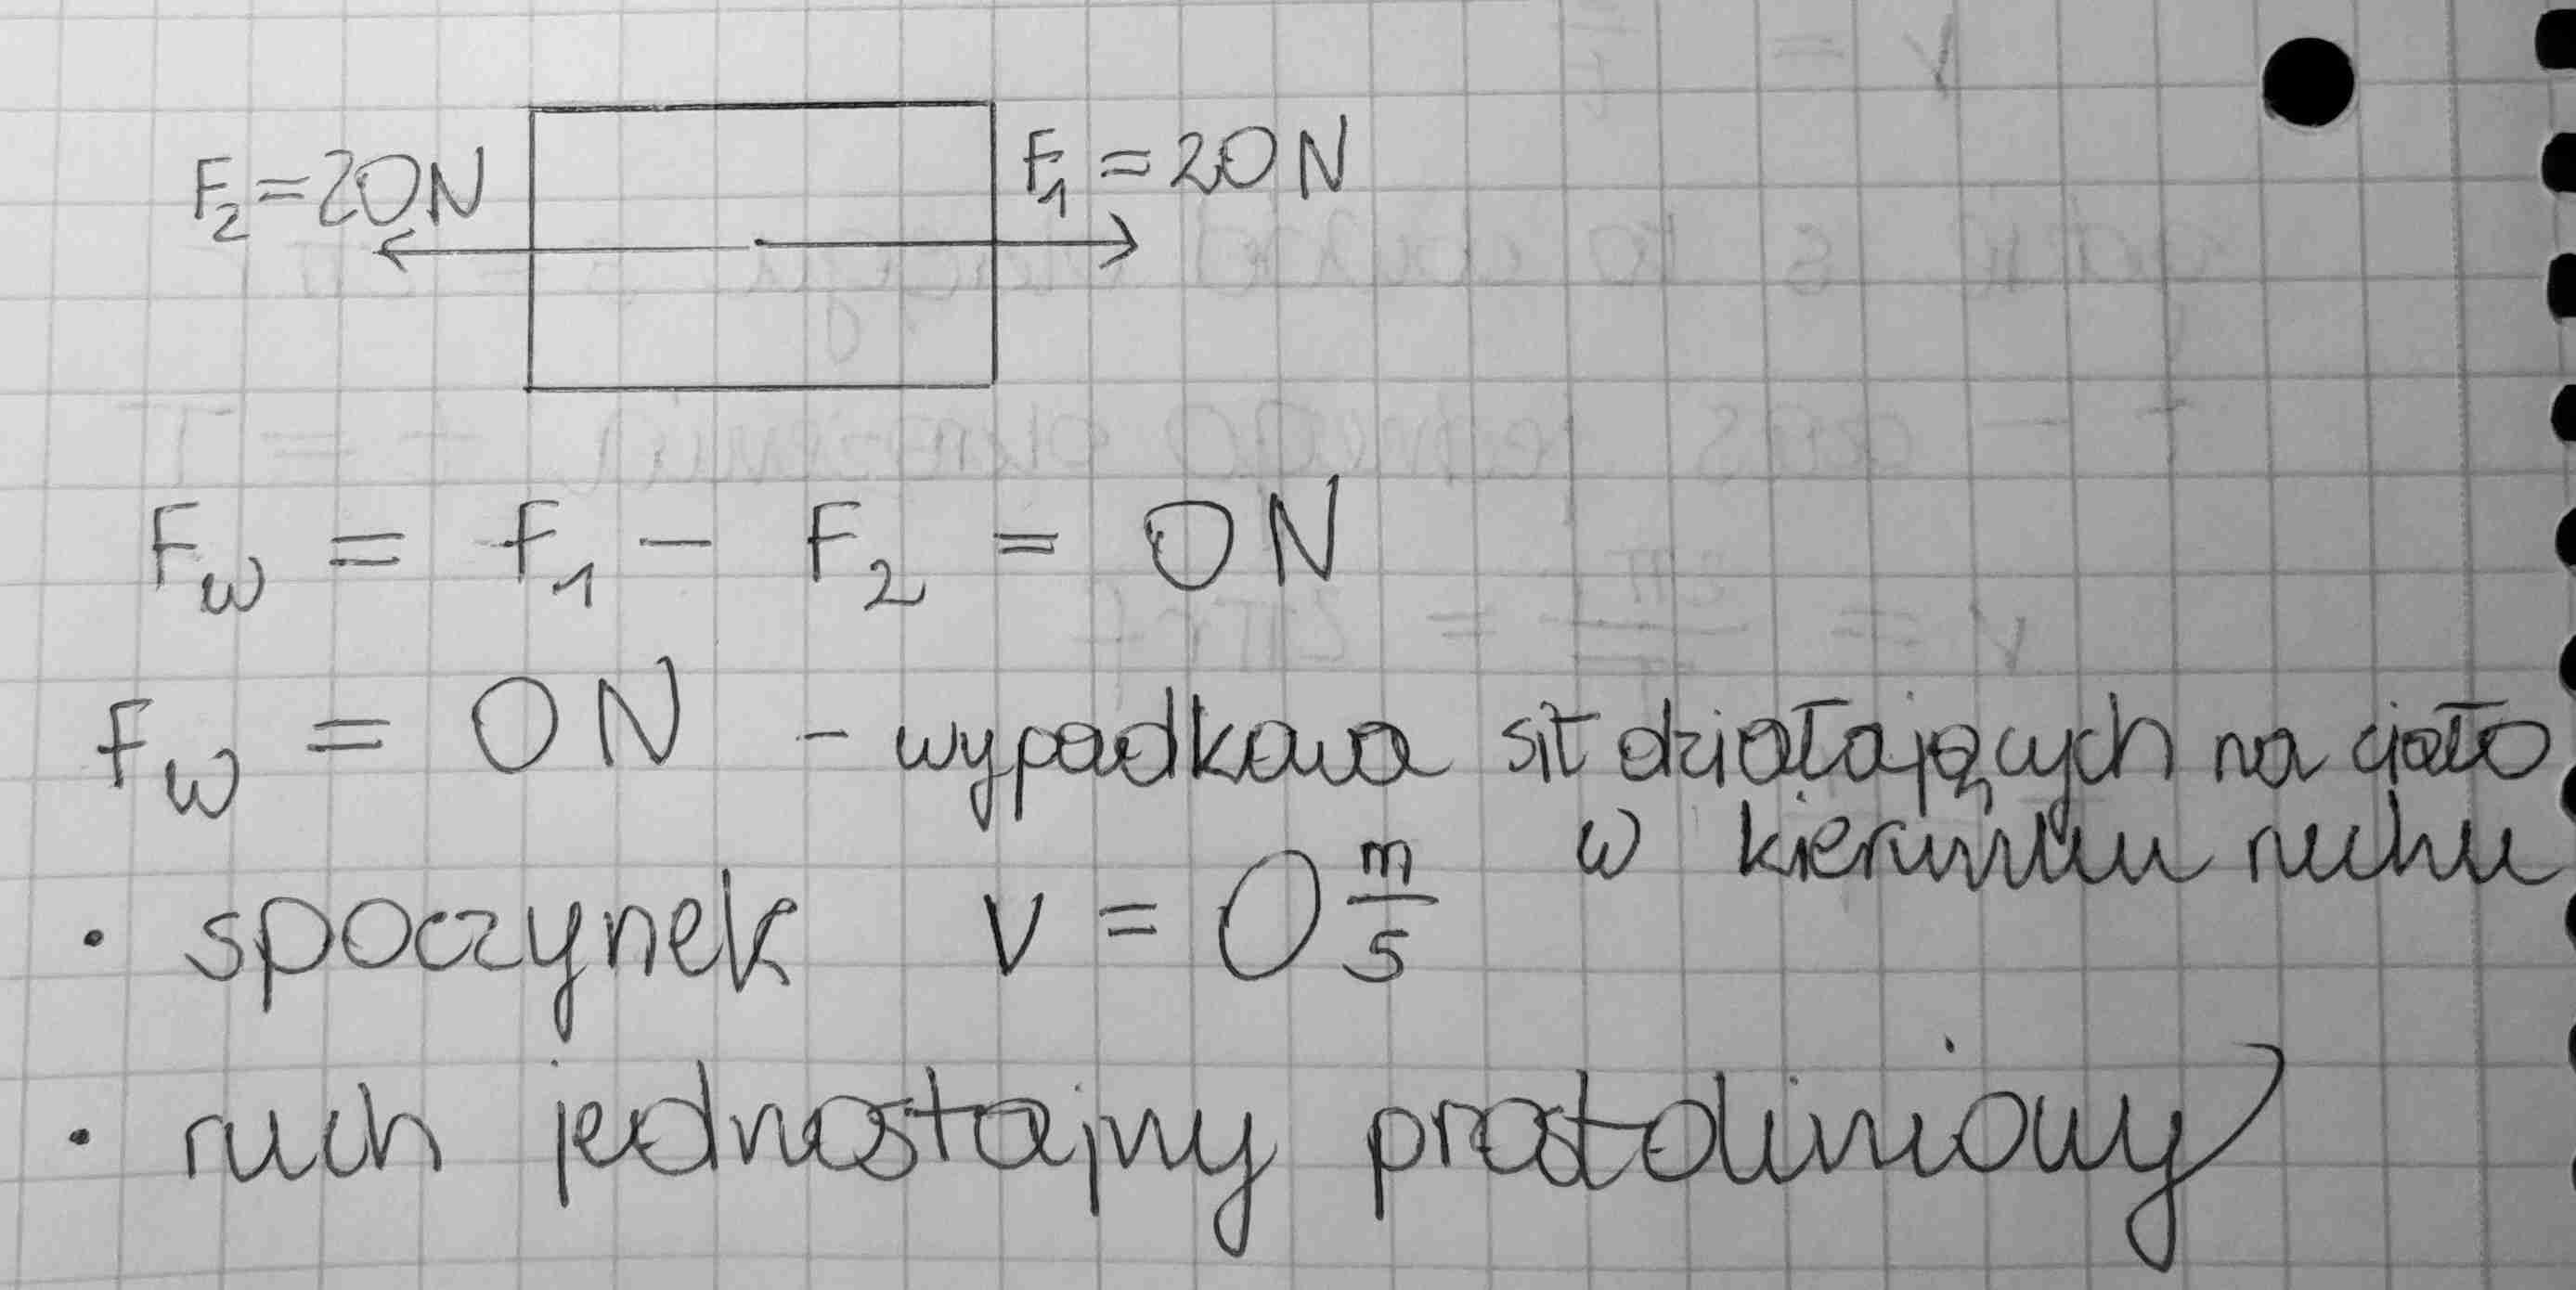 F₂ = 20N F₁ = 20N
F_w = F₁ - F₂ = 0N
F_w = 0N - wypadkowa sił działających na ciało
w kierunku ruchu
• spoczynek v = 0 m/s
• ruch jednostajny prostoliniowy